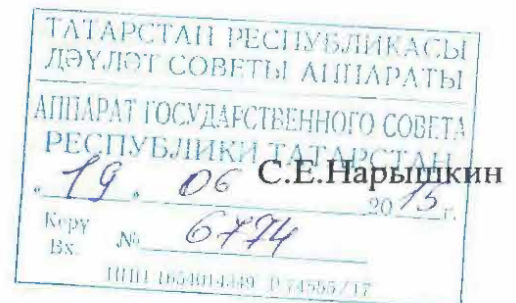 ТАТАРСТАН РЕСПУБЛИКАСЫ
ДӘҮЛӘТ СОВЕТЫ АППАРАТЫ
АППАРАТ ГОСУДАРСТВЕННОГО СОВЕТА
РЕСПУБЛИКИ ТАТАРСТАН
С.Е.Нарышкин
"19" 06 2015 г.
Керү
Вх. № 6774
ИНН 1654014349